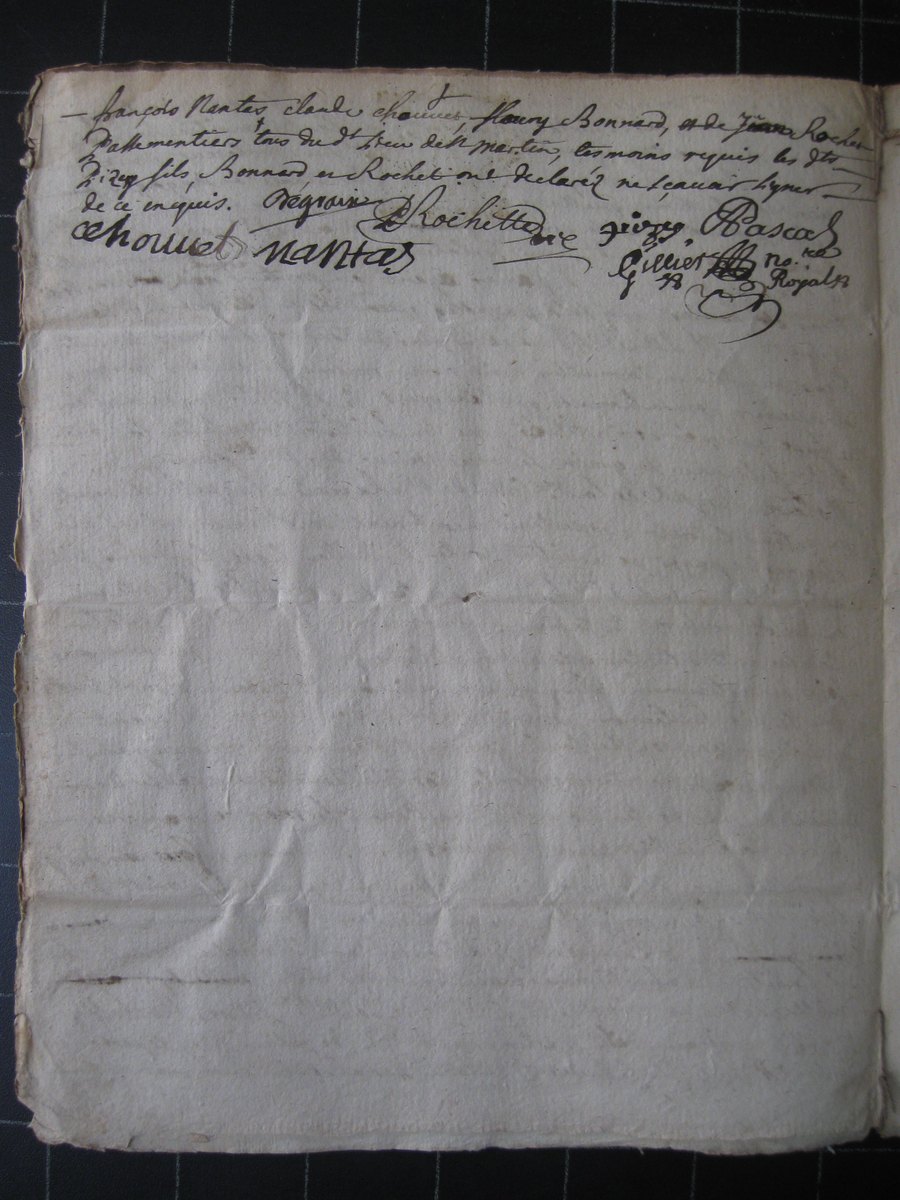 françois Nantas, claude chouvet, fleury Bonnard, et de Jean Rochet
Passementiers tous du dt lieu de St martin, tesmoins requis les dts
fils, Bonnard et Rochet ont declaréz ne sçavoir signer
de ce enquis. Degraix Rochette
chouvet nantas Pascal
Gillier nore
Royal